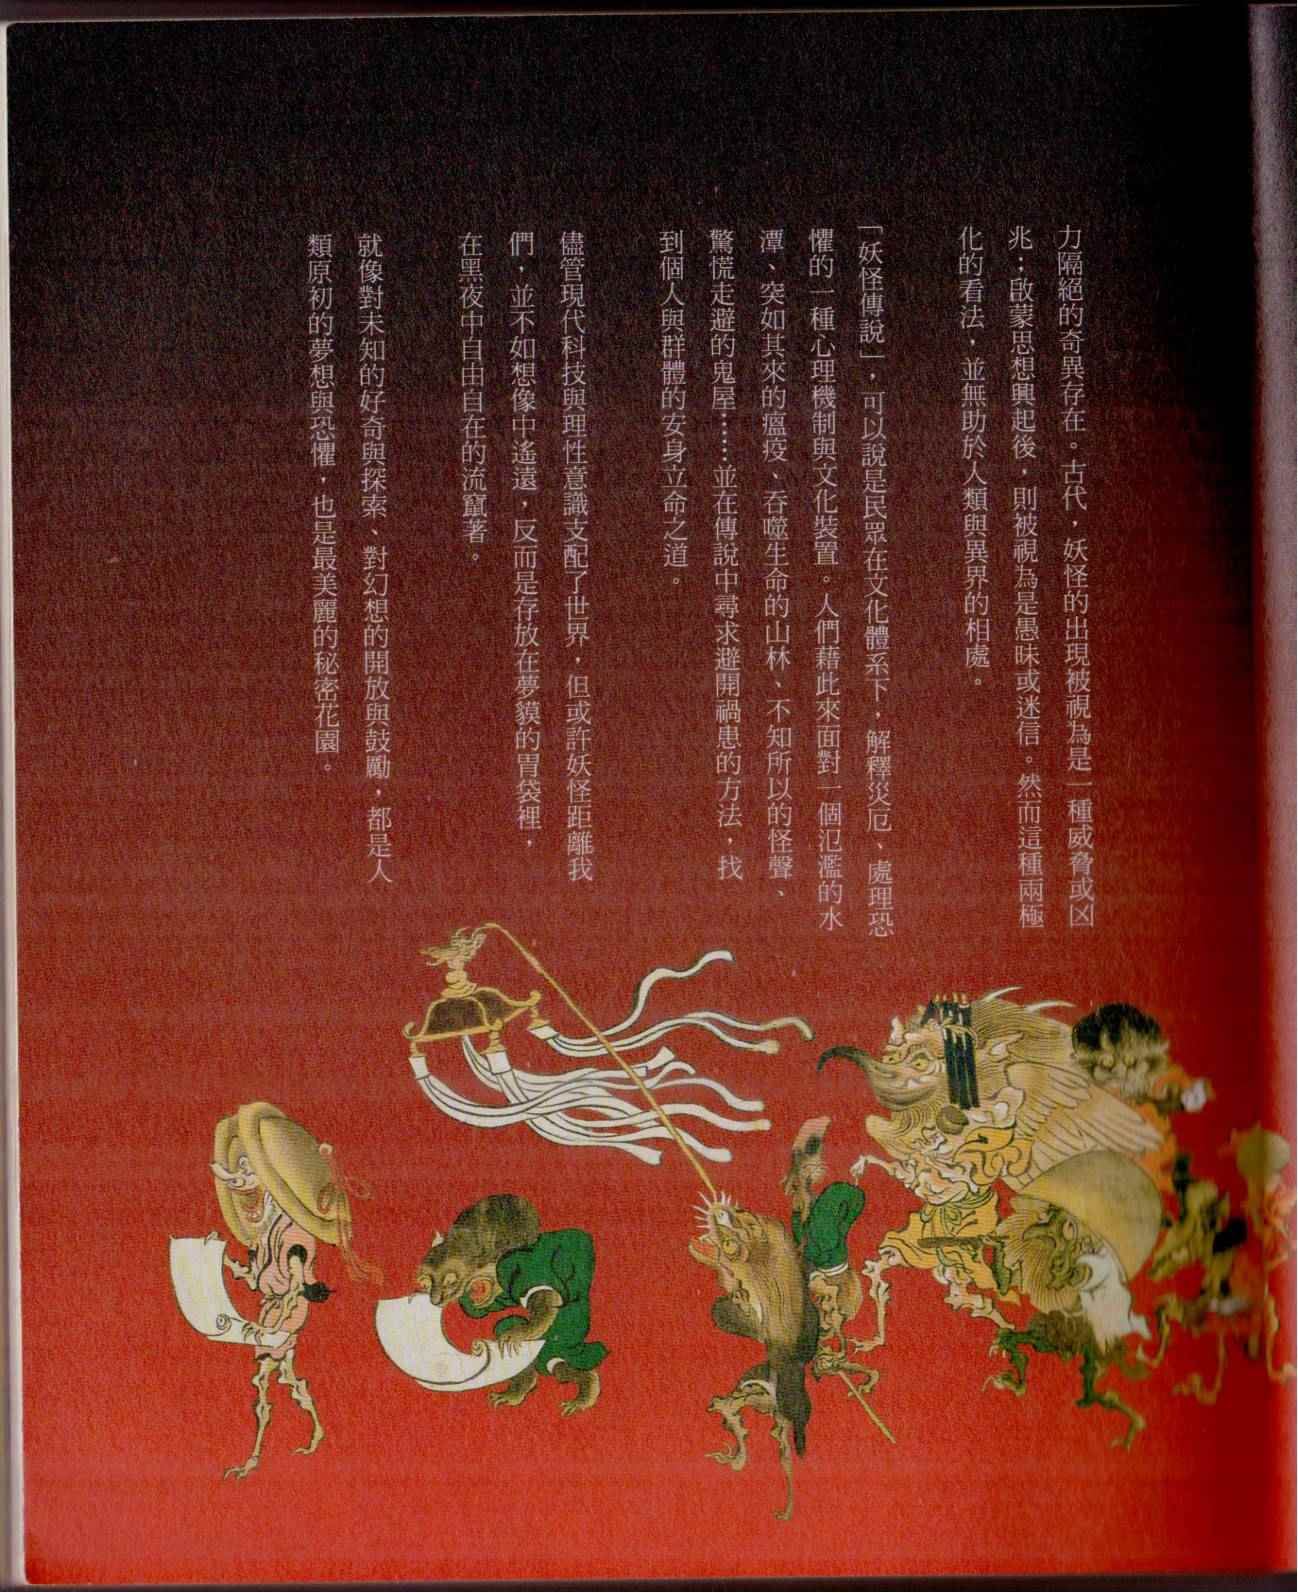 力隔絕的奇異存在。古代，妖怪的出現被視為是一種威脅或凶
兆；啟蒙思想興起後，則被視為是愚昧或迷信。然而這種兩極
化的看法，並無助於人類與異界的相處。
「妖怪傳說」，可以說是民眾在文化體系下，解釋災厄、處理恐
懼的一種心理機制與文化裝置。人們藉此來面對一個氾濫的水
潭、突如其來的瘟疫、吞噬生命的山林、不知所以的怪聲、
驚慌走避的鬼屋……並在傳說中尋求避開禍患的方法，找
到個人與群體的安身立命之道。
儘管現代科技與理性意識支配了世界，但或許妖怪距離我
們，並不如想像中遙遠，反而是存放在夢貘的胃袋裡，
在黑夜中自由自在的流竄著。
就像對未知的好奇與探索、對幻想的開放與鼓勵，都是人
類原初的夢想與恐懼，也是最美麗的秘密花園。